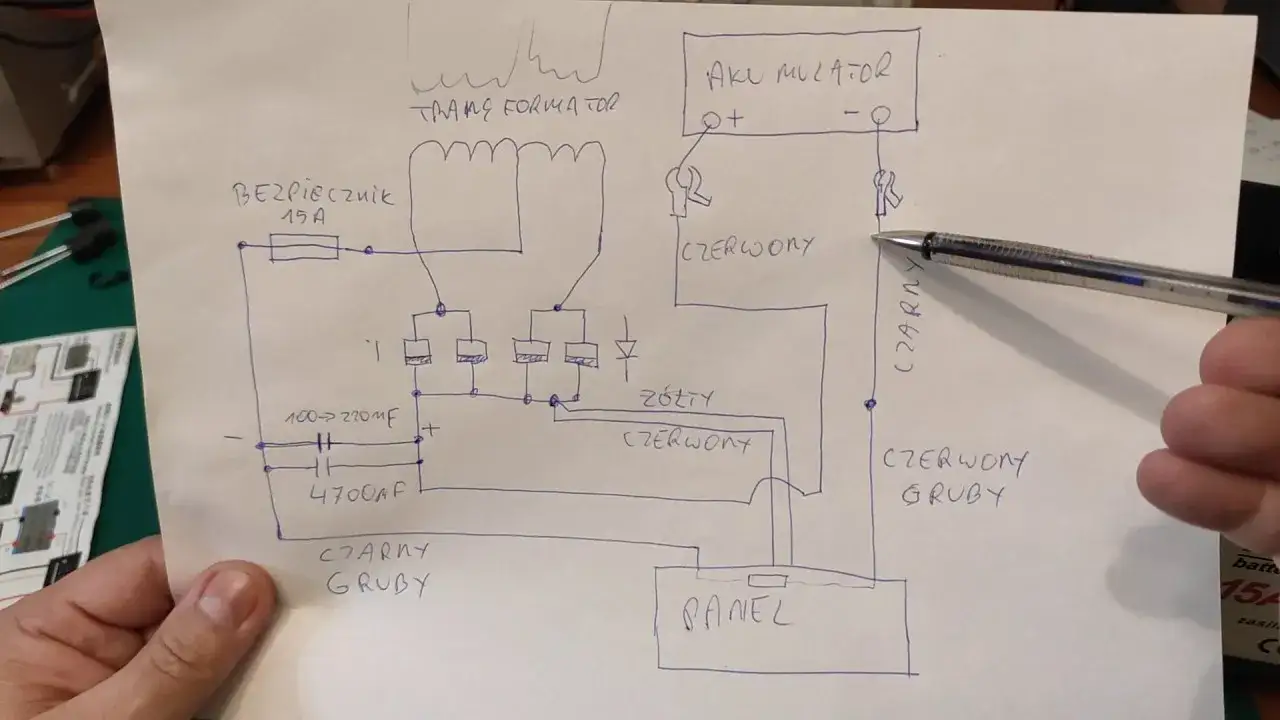 TRANSFORMATOR
AKUMULATOR
+ -
BEZPIECZNIK
15A
CZERWONY
CZARNY
ŻÓŁTY
CZERWONY
100->220nF
+
-
4700µF
CZERWONY
GRUBY
CZARNY
GRUBY
PANEL
15A